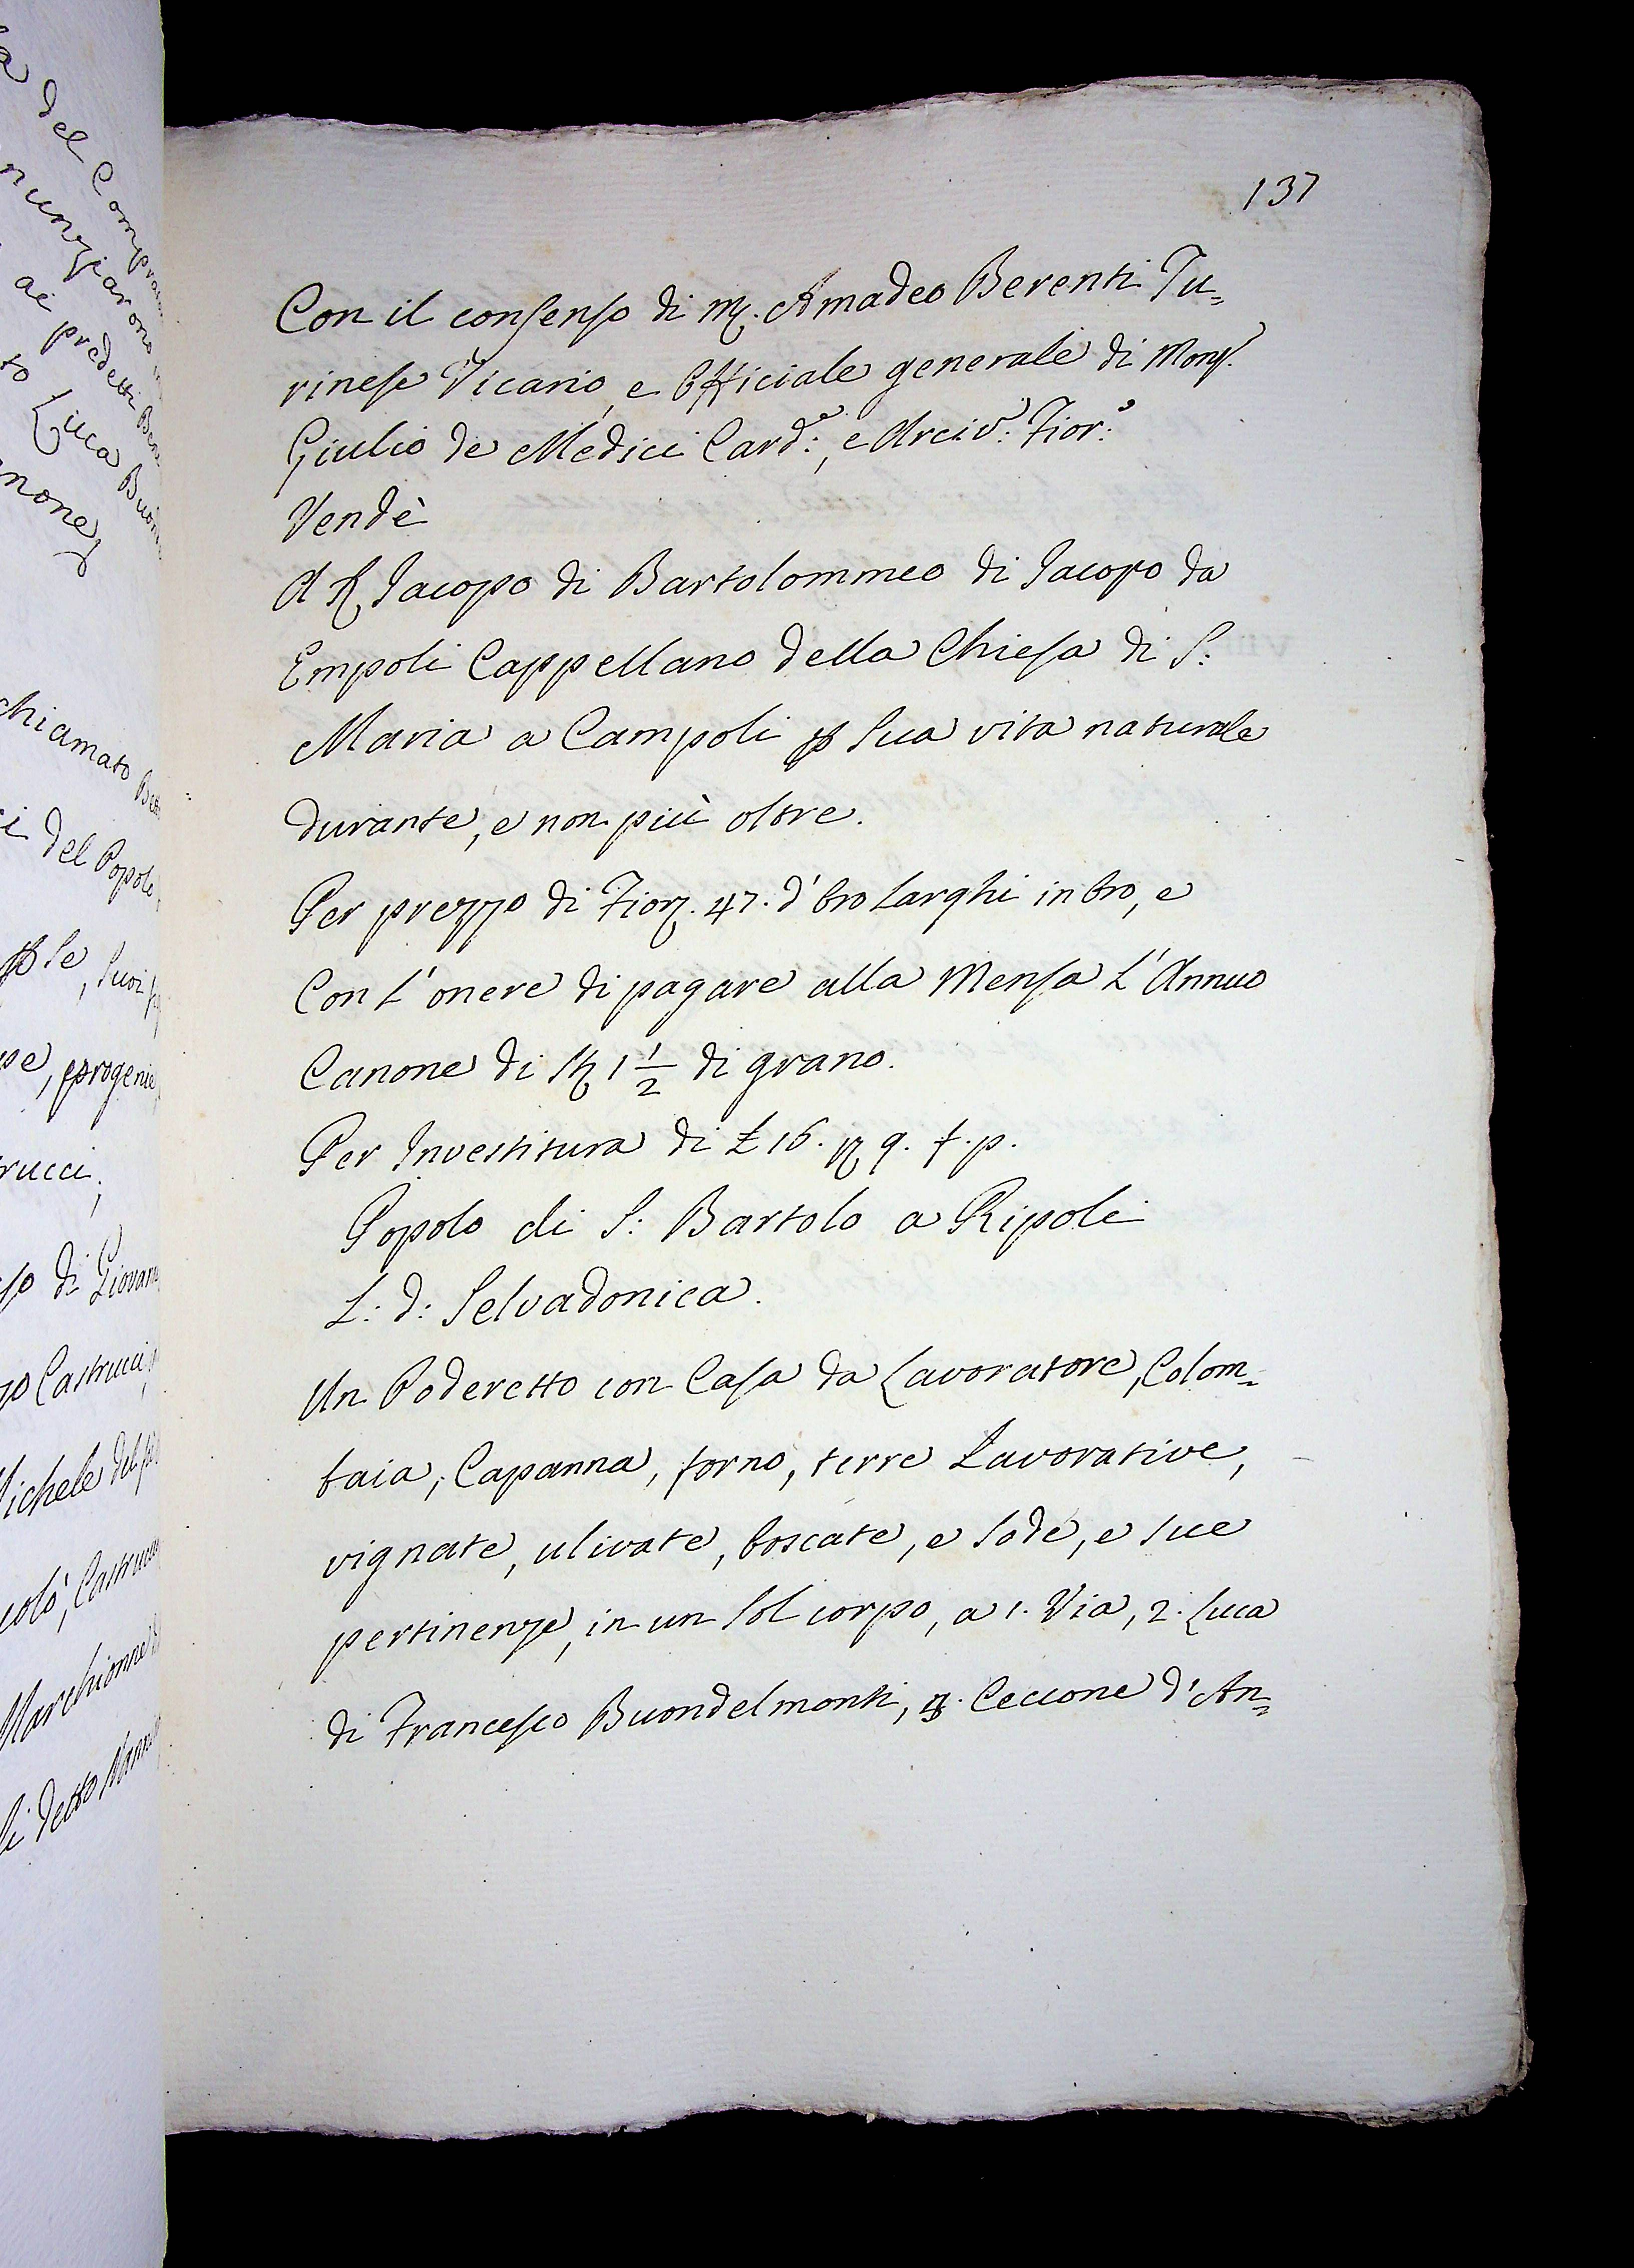 137
Con il consenso di m. Amadeo Berenti Tu=
rinese Vicario, e Officiale generale di Mons.
Giulio de Medici Card:e, e Arciv:o Fior:o
Vendè
A S. Jacopo di Bartolommeo di Jacopo da
Empoli Cappellano della Chiesa di S:
Maria a Campoli p sua vita naturale
durante, e non più oltre.
Per prezzo di Fior. 47. d'Oro Larghi in Oro, e
Con L'onere di pagare alla Mensa L'Annuo
Canone di St 1 1/2 di grano.
Per Investitura di £ 16. 9. f. p.
Popolo di S: Bartolo a Ripoli
L: d: Selvadonica.
Un Poderetto con Casa da Lavoratore, Colom=
baia, Capanna, forno, terre Lavorative,
vignate, ulivate, boscate, e sode, e sue
pertinenze, in un sol corpo, a 1. Via, 2. Luca
di Francesco Buondelmonti, 3. Ceccone d'An=
del Compra
nunziarono
ai predetti
Luca Buon
chiamato
del Popolo
p se, suoi
progenie
rucci,
di Giovan
Castrucci
Michele del
Marchionne
detto